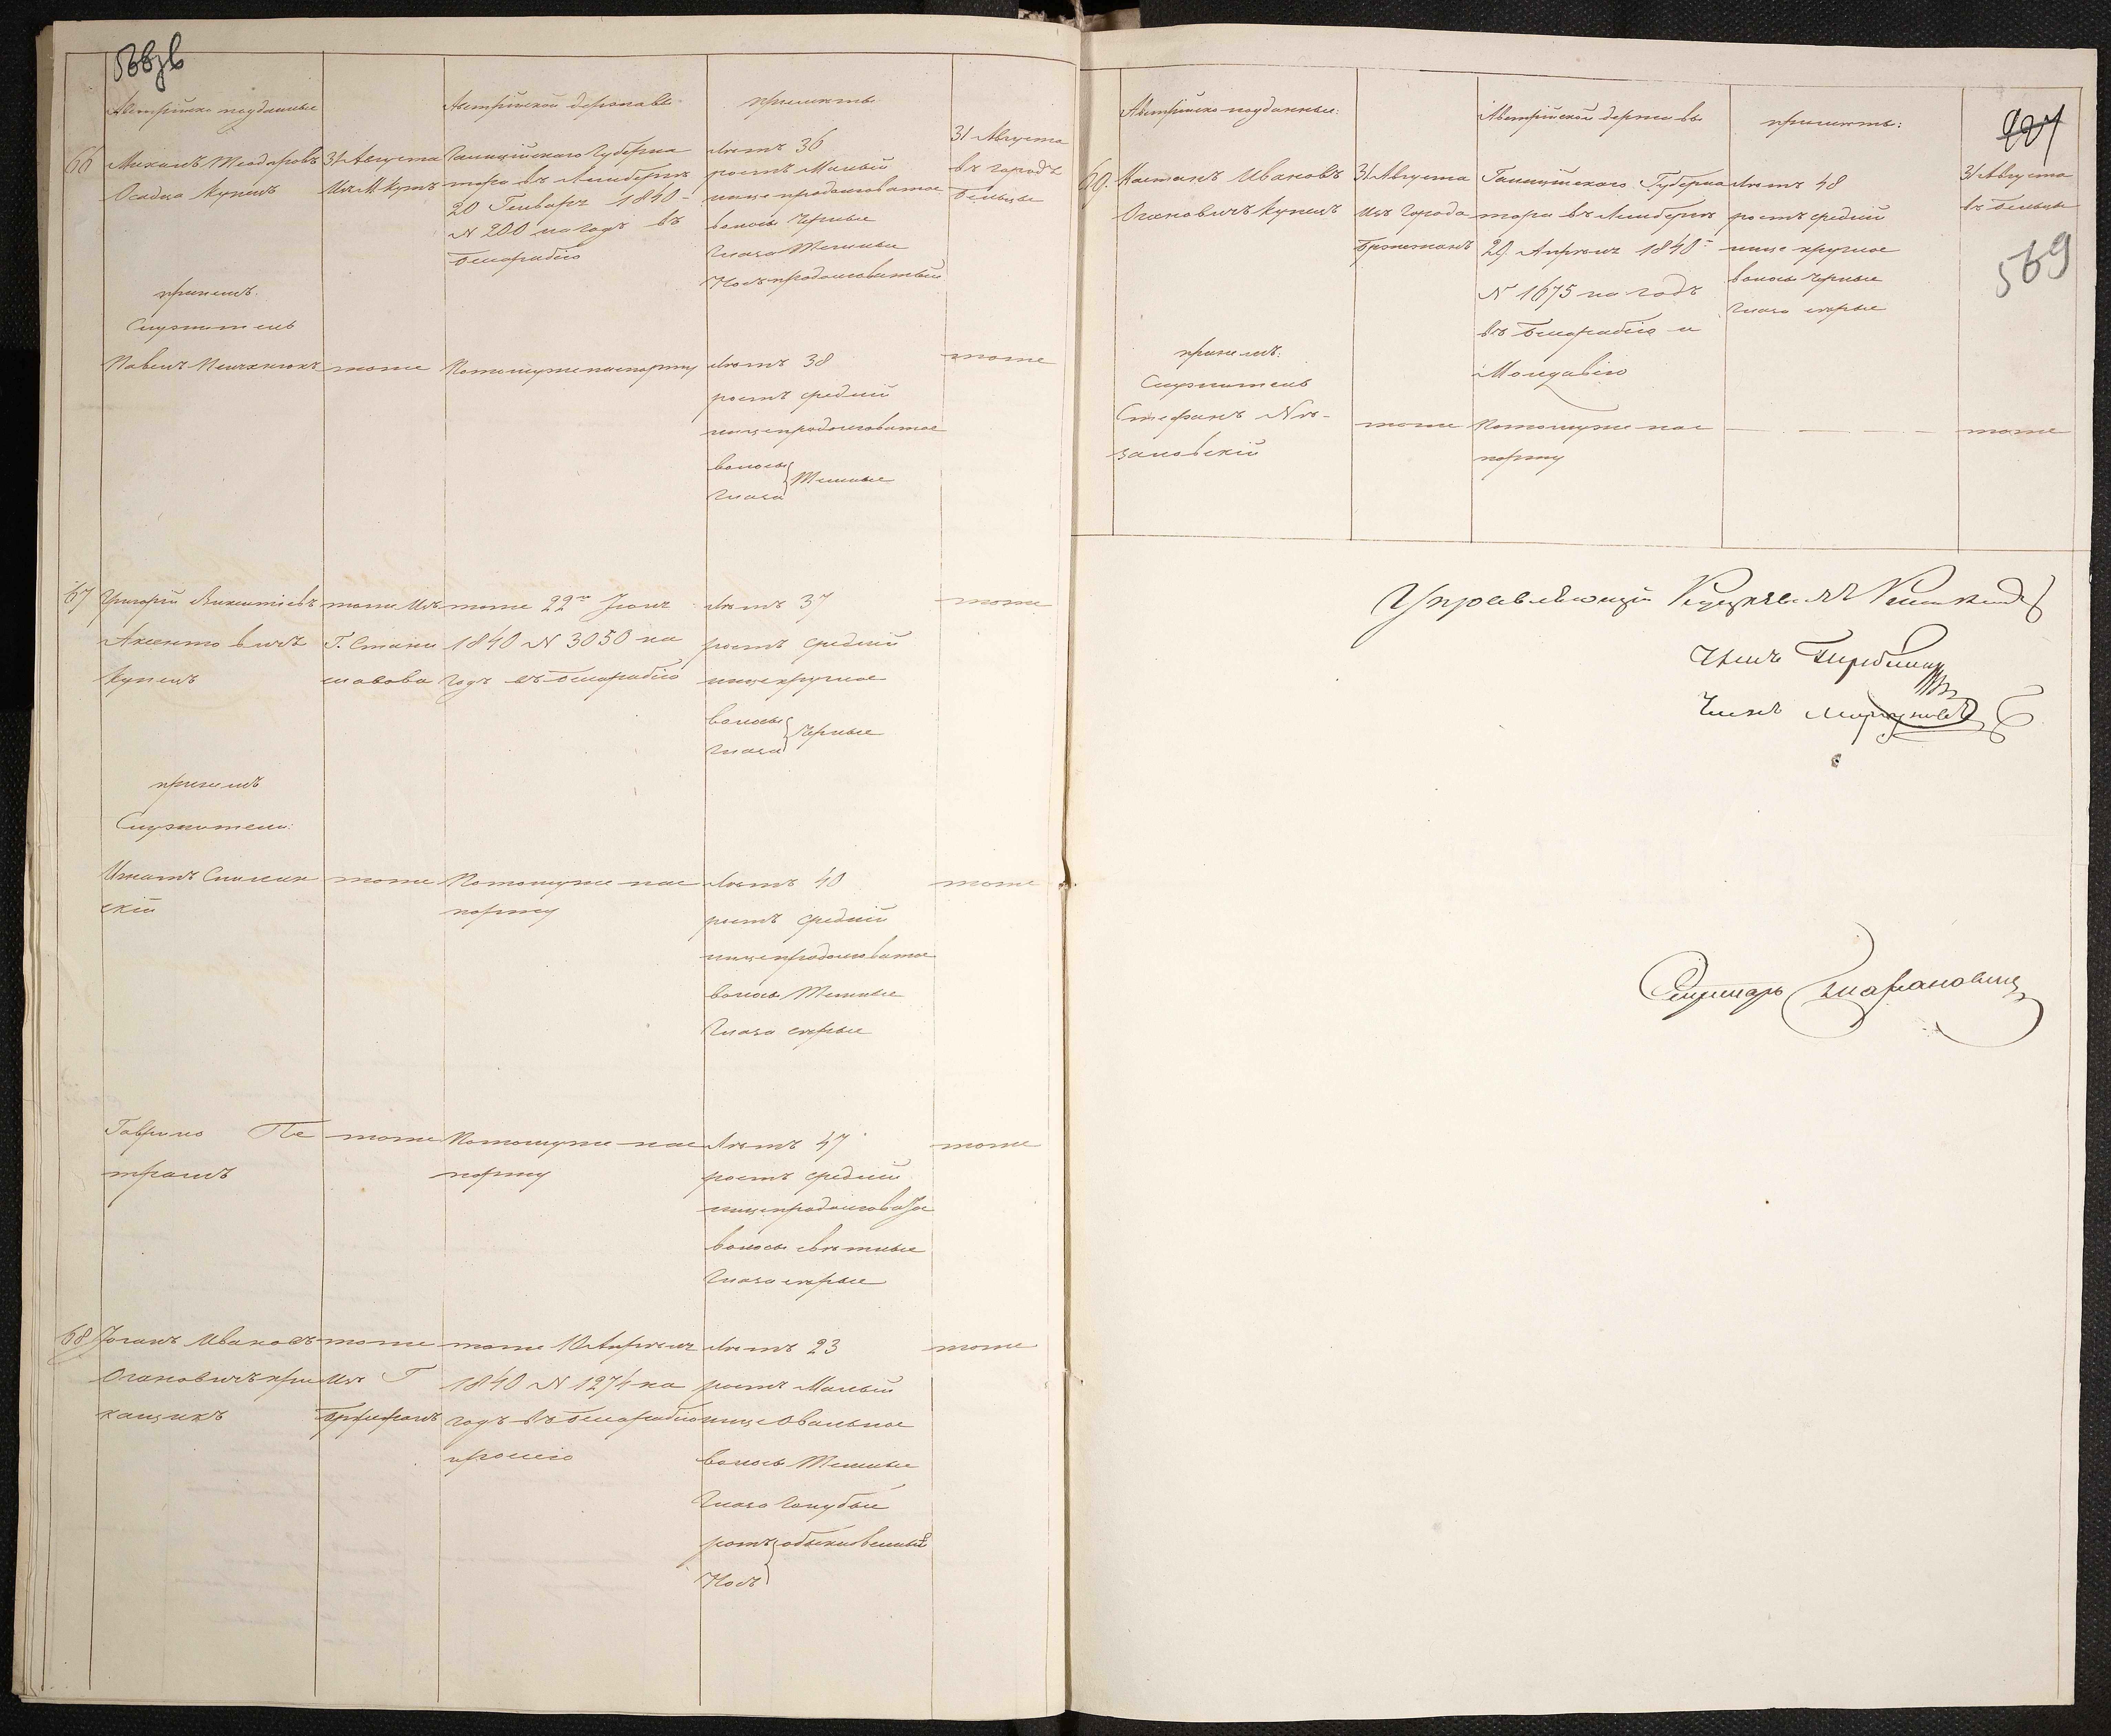 568 об
Австрійско подданные
Австрійской державы
примѣты
66
Михаилъ Теодоровъ
Осадца купецъ
31 Августа
Изъ М. Кутъ
Галиційскаго Губерна
тора въ Лембергѣ
20 Генваря 1840
№ 200 на годъ въ
Бесарабію
Лѣтъ 36
ростъ Малый
лице продолговатое
волосы Черные
Глаза Темные
Носъ продолговатый
31 Августа
въ городѣ
Бельцы
при немъ
Служитель
Павелъ
тоже
Потомуже паспорту
Лѣтъ 38
ростъ средній
лице продолговатое
волосы
Глаза
Темные
тоже
67
Григорій Викентіевъ
Аксентовичъ
купецъ
тоже Изъ
Г. Стани
славова
тоже 22го Іюня
1840 № 3050 на
годъ въ Бесарабію
Лѣтъ 37
ростъ средній
лице круглое
волосы
Глаза
Черные
тоже
при немъ
Служители:
Игнатъ
скій
тоже
Потомуже пас
порту
Лѣтъ 40
ростъ средній
лице продолговатое
волосы Темные
Глаза серые
тоже
Гаврило Пе
трашъ
тоже
Потомуже пас
порту
Лѣтъ 47
ростъ средній
лице продолговатое
волосы светлые
Глаза серые
тоже
68
Іоганъ Ивановъ
Огановичъ при
кащикъ
тоже
Изъ Г
тоже Апрѣля
1840 № 1274 на
годъ въ Бесарабію
Лѣтъ 23
ростъ Малый
лице Овальное
волосы Темные
Глаза Голубые
ротъ
Носъ
обыкновенный
тоже
Австрійско подданные:
Австрійской державы
примѣты:
569
69.
Ивановъ
Огановичъ купецъ
31 Августа
Изъ Города
Галиційскаго Губерна
тора въ Лембергѣ
29 Апрѣля 1840
№ 1675 на годъ
въ Бесарабію и
Молдавію
Лѣтъ 48
ростъ средній
лице круглое
волосы Черные
Глаза серые
31 Августа
въ Бельцы
при немъ:
Служитель
Стефанъ
тоже
Потомуже пас
порту
тоже
Управляющій
Членъ
Членъ
Секретарь